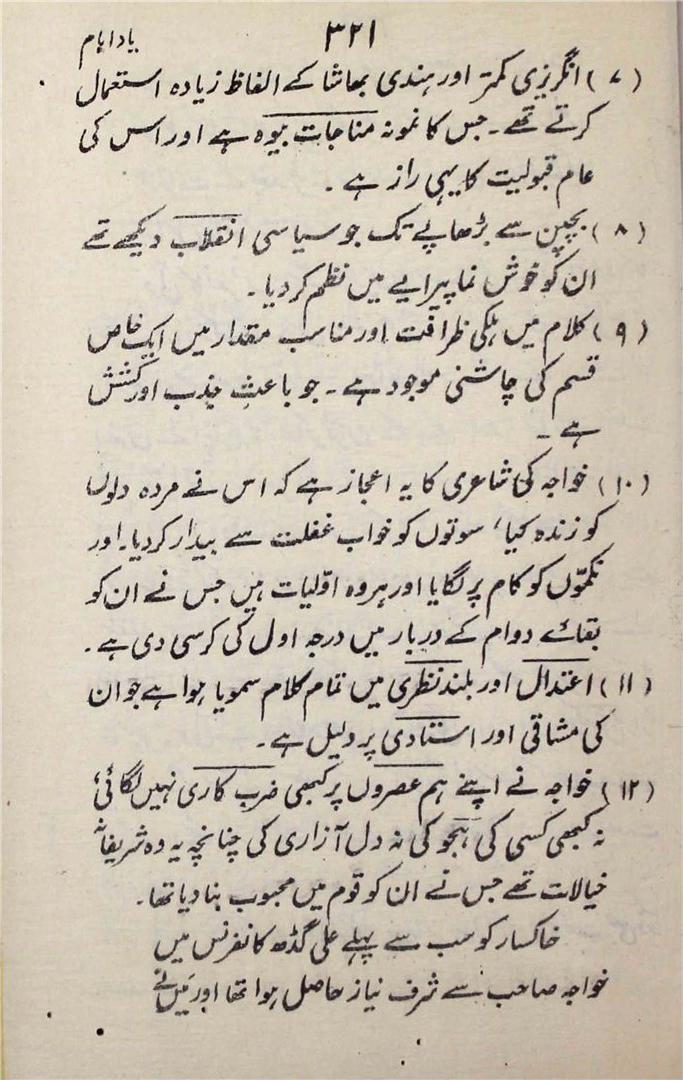 ۳۲۱
یاد ایام
(۷) انگریزی کمتر اور ہندی بھاشا کے الفاظ زیادہ استعمال
کرتے تھے۔ جس کا نمونہ مناجات بیوہ ہے اور اس کی
عام قبولیت کا یہی راز ہے ۔
(۸) بچپن سے بڑھاپے تک جو سیاسی انقلاب دیکھے تھے
ان کو خوش نما پیرایے میں نظم کر دیا۔
(۹) کلام میں ہلکی ظرافت اور مناسب مقدار میں ایک خاص
قسم کی چاشنی موجود ہے۔ جو باعثِ جذب اور کشش
ہے ۔
(۱۰) خواجہ کی شاعری کا یہ اعجاز ہے کہ اس نے مردہ دلوں
کو زندہ کیا، سوتوں کو خواب غفلت سے بیدار کر دیا۔ اور
نکموّں کو کام پر لگایا اور ہر وہ اوّلیات ہیں جس نے ان کو
بقائے دوام کے دربار میں درجہ اول کی کرسی دی ہے۔
(۱۱) اعتدال اور بلند نظری میں تمام کلام سمویا ہوا ہے جو ان
کی مشاقی اور استادی پر دلیل ہے۔
(۱۲) خواجہ نے اپنے ہم عصروں پر کبھی ضرب کاری نہیں لگائی،
نہ کبھی کسی کی ہجو کی نہ دل آزاری کی چنانچہ یہ وہ شریفانہ
خیالات تھے جس نے ان کو قوم میں محبوب بنا دیا تھا۔
خاکسار کو سب سے پہلے علی گڈھ کانفرنس میں
خواجہ صاحب سے شرف نیاز حاصل ہوا تھا اور میں نے